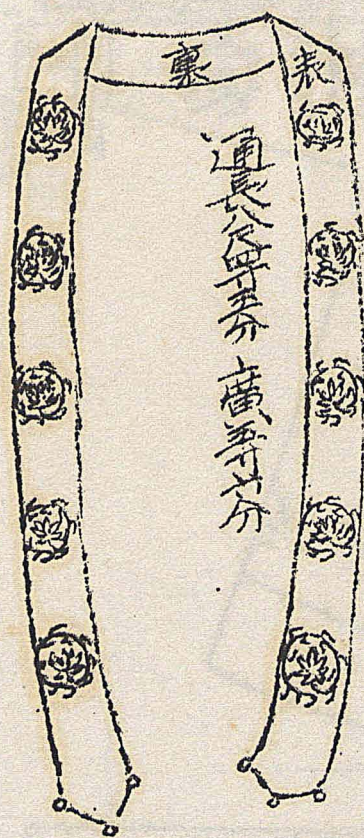 表
裏
通長八尺四寸五分 廣寸六分